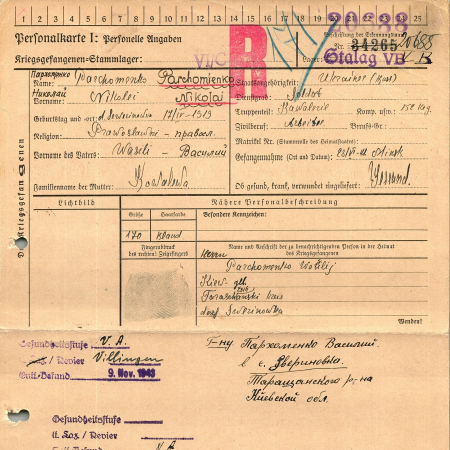 1 2 3 4 5 6 7 8 9 10 11 12 13 14 15 16 17 18 19 20 21 22 23 24 25
Personalkarte I: Personelle Angaben
Kriegsgefangenen-Stammlager:
R
Beschriftung der Erkennungsmarke
Nr. 34265
Lager: Stalag VB
Пархоменко
Name: Parchomenko Parchomienko
Staatsangehörigkeit: Ukrainer (Russ)
Николай
Vorname: Nikolai Nikolai
Dienstgrad: Soldat
Truppenteil: Kawalerie Komp. usw.:
Geburtstag und -ort: 1919
Zivilberuf: Arbeiter Berufs-Gr.:
Religion: правосл.
Matrikel Nr. (Stammrolle des Heimatstaates)
Vorname des Vaters: Wasili - Василий
Gefangennahme (Ort und Datum): Minsk
Familienname der Mutter: Kowalowa
Ob gesund, krank, verwundet eingeliefert: Gesund.
Des Kriegsgefangenen
Lichtbild
Nähere Personalbeschreibung
Größe
Haarfarbe
Besondere Kennzeichen:
170
blond
Fingerabdruck
des rechten! Zeigefingers
Name und Anschrift der zu benachrichtigenden Person in der Heimat
des Kriegsgefangenen
Herrn
Parchomenko Wasilij
Kiew. gb.
Taraschanski kreis
dorf Dwerinowka
Wenden!
Gesundheitsstufe V. A.
Revier Villingen
Entl.-Befund 9. Nov. 1943
Г-ну Пархоменко Василий
в с. Двериновка
Таращанского р-на
Киевской обл.
Gesundheitsstufe
Laz / Revier
V. A.